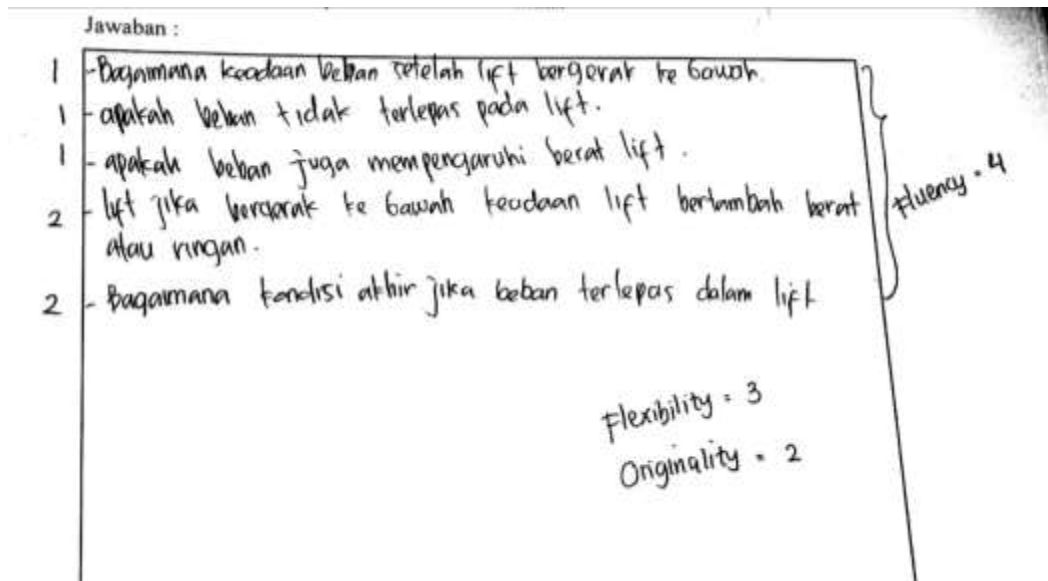 Jawaban :
1 - Bagaimana keadaan beban setelah lift bergerak ke bawah.
1 - apakah beban tidak terlepas pada lift.
1 - apakah beban juga mempengaruhi berat lift.
2 - lift jika bergerak ke bawah keadaan lift bertambah berat
atau ringan.
2 - Bagaimana kondisi akhir jika beban terlepas dalam lift
Fluency = 4
Flexibility = 3
Originality = 2